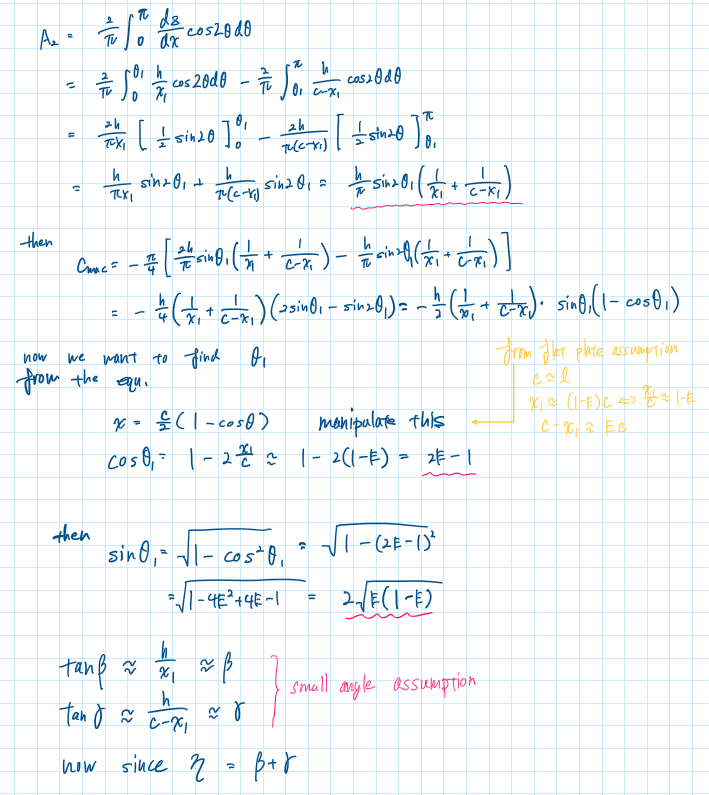 A₂ = 2/π ∫₀^π dz/dx cos2θdθ
= 2/π ∫₀^θ₁ h/x₁ cos2θdθ - 2/π ∫_θ₁^π h/(c-x₁) cos2θdθ
= 2h/(πx₁) [ 1/2 sin2θ ]₀^θ₁ - 2h/(π(c-x₁)) [ 1/2 sin2θ ]_θ₁^π
= h/(πx₁) sin2θ₁ + h/(π(c-x₁)) sin2θ₁ = h/π sin2θ₁ ( 1/x₁ + 1/(c-x₁) )
then
Cmac = - π/4 [ 2h/π sinθ₁ ( 1/x₁ + 1/(c-x₁) ) - h/π sin2θ₁ ( 1/x₁ + 1/(c-x₁) ) ]
= - h/4 ( 1/x₁ + 1/(c-x₁) ) ( 2sinθ₁ - sin2θ₁ ) = - h/2 ( 1/x₁ + 1/(c-x₁) ) · sinθ₁ ( 1 - cosθ₁ )
now we want to find θ₁
from the equ.
from flat plate assumption
c ≃ l
x₁ ≃ (1-E)c ⇔ x₁/c ≃ 1-E
c-x₁ ≃ Ec
x = c/2 ( 1 - cosθ ) manipulate this
cosθ₁ = 1 - 2 x₁/c ≃ 1 - 2(1-E) = 2E - 1
then
sinθ₁ = √(1 - cos²θ₁) = √(1 - (2E-1)²)
= √(1-4E²+4E-1) = 2√(E(1-E))
tanβ ≈ h/x₁ ≈ β
tanγ ≈ h/(c-x₁) ≈ γ
small angle assumption
now since η = β+γ